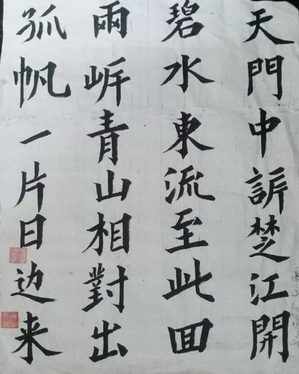 天門中訴楚江開
碧水東流至此囬
兩岍青山相對出
孤帆一片日边来